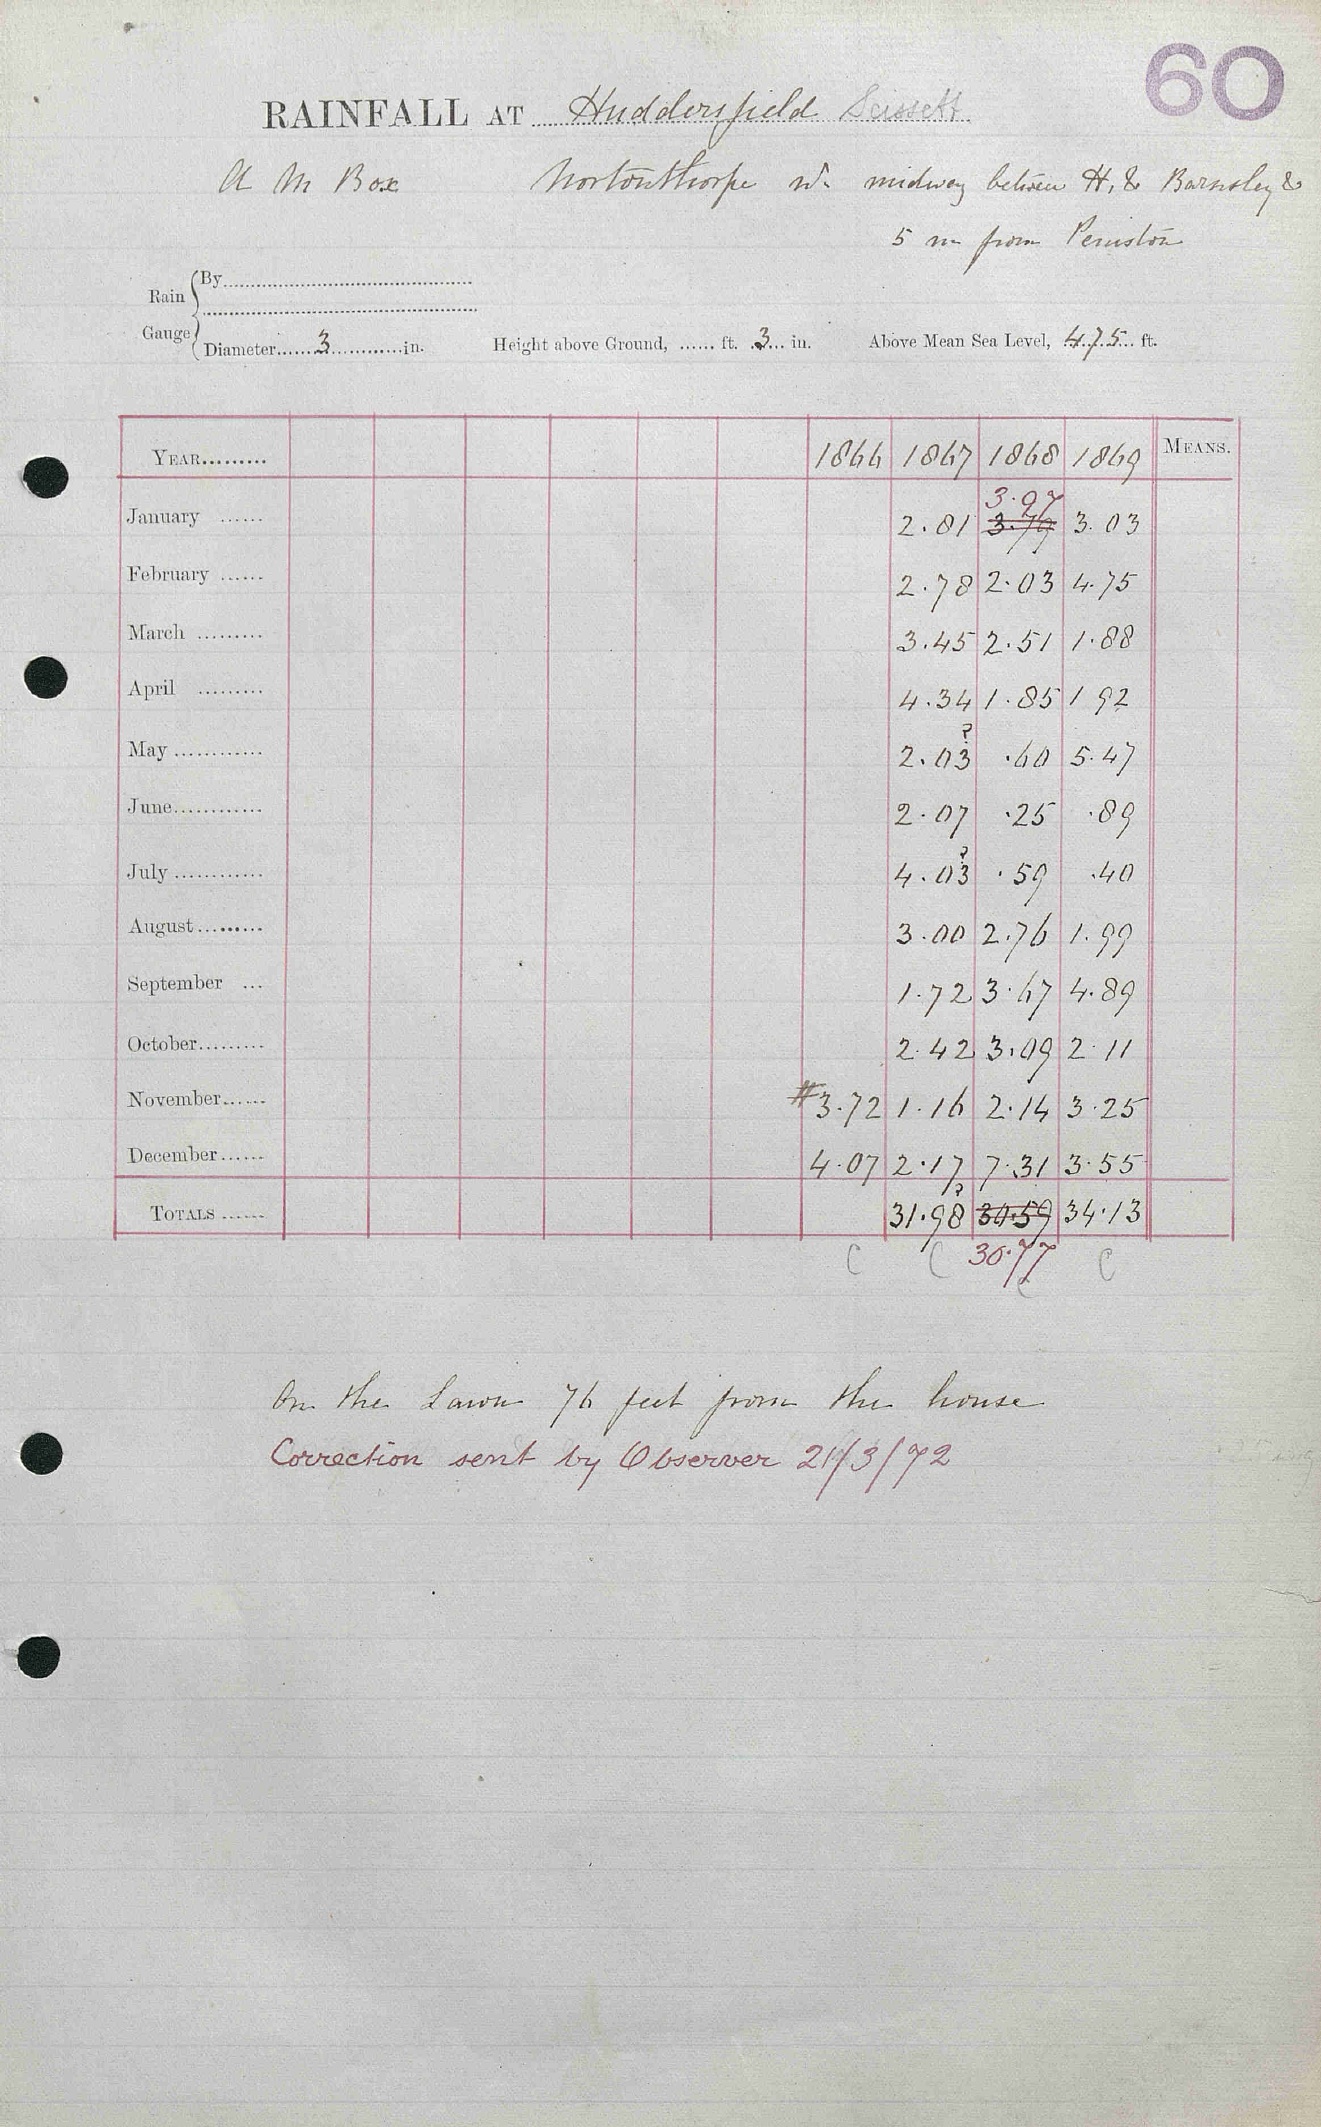 60
RAINFALL AT Huddersfield Scissett
A M Box Nortonthorpe midway between H. & Barnsley &
5 m from Peniston
Rain Gauge
By
Diameter 3 in. Height above Ground, ...... ft. 3 in. Above Mean Sea Level, 475 ft.
YEAR......... 1866 1867 1868 1869 MEANS.
3.97
January ...... 2.81 3.79 3.03
February ...... 2.78 2.03 4.75
March ......... 3.45 2.51 1.88
April ......... 4.34 1.85 1 92
?
May ............ 2.03 .60 5.47
June............ 2.07 .25 .89
?
July ............ 4.03 .59 .40
August......... 3.00 2.76 1.99
September ... 1.72 3.67 4.89
October......... 2.42 3.09 2.11
November...... #3.72 1.16 2.14 3.25
December...... 4.07 2.17 7.31 3.55
?
TOTALS ...... 31.98 30.59 34.13
C C 30.77 C C
On the Lawn 76 feet from the house
Correction sent by Observer 21/3/72